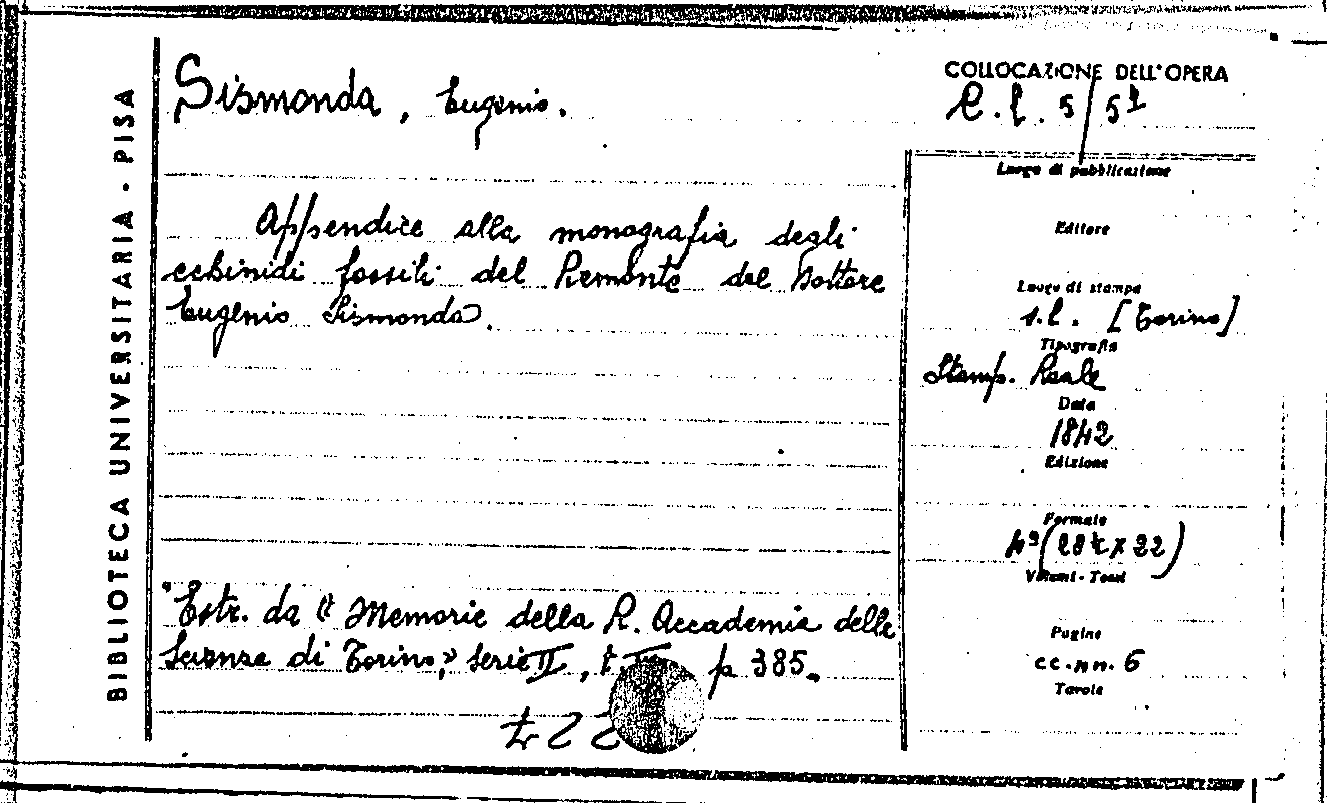 BIBLIOTECA UNIVERSITARIA - PISA
Sismonda, Eugenio.
COLLOCAZIONE DELL'OPERA
5/51
Luogo di pubblicazione
Appendice alla monografia degli
echinidi fossili del Piemonte del Dottore
Eugenio Sismonda.
Editore
Luogo di stampa
s.l. [Torino]
Tipografia
Stamp. Reale
Data
1842
Edizione
Formato
4º (28½ x 22)
Volumi - Tomi
Pagine
cc. nn. 6
Tavole
Estr. da "Memorie della R. Accademia delle
Scienze di Torino," serie II, t. p 385.